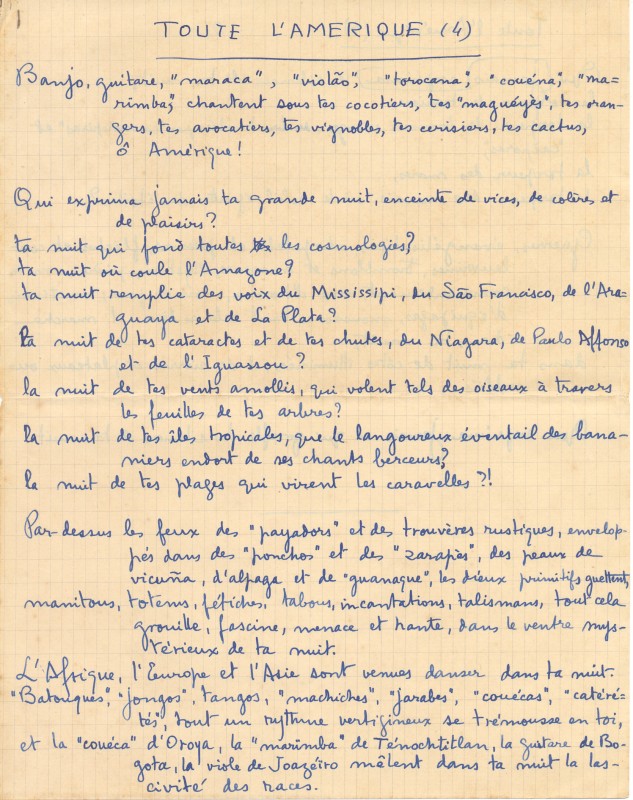 TOUTE L'AMERIQUE (4)
Banjo, guitare, "maraca", "violão", "torocana", "couéna", "ma-
rimba", chantent sous tes cocotiers, tes "maguéyès", tes oran-
gers, tes avocatiers, tes vignobles, tes cerisiers, tes cactus,
ô Amérique!
Qui exprima jamais ta grande nuit, enceinte de vices, de colères et
de plaisirs?
ta nuit qui fond toutes les cosmologies?
ta nuit où coule l'Amazone?
ta nuit remplie des voix du Mississipi, du São Francisco, de l'Ara-
guaya et de La Plata?
la nuit de tes cataractes et de tes chutes, du Niagara, de Paulo Affonso
et de l'Iguassou?
la nuit de tes vents amollis, qui volent tels des oiseaux à travers
les feuilles de tes arbres?
la nuit de tes îles tropicales, que le langoureux éventail des bana-
niers endort de ses chants berceurs?
la nuit de tes plages qui virent les caravelles?!
Par-dessus les feux des "payadors" et des trouvères rustiques, envelop-
pés dans des "ponchos" et des "zarapès", des peaux de
vicuña, d'alpaga et de "guanaque", les dieux primitifs guettent,
manitous, totems, fétiches, tabous, incantations, talismans, tout cela
grouille, fascine, menace et hante, dans le ventre mys-
térieux de ta nuit.
L'Afrique, l'Europe et l'Asie sont venues danser dans ta nuit.
"Batouques", "jongos", tangos, "machiches", "jarabes", "couécas", "catéré-
tés", tout un rythme vertigineux se trémousse en toi,
et la "couéca" d'Oroya, la "marimba" de Ténochtitlan, la guitare de Bo-
gota, la viole de Joazéiro mêlent dans ta nuit la las-
civité des races.